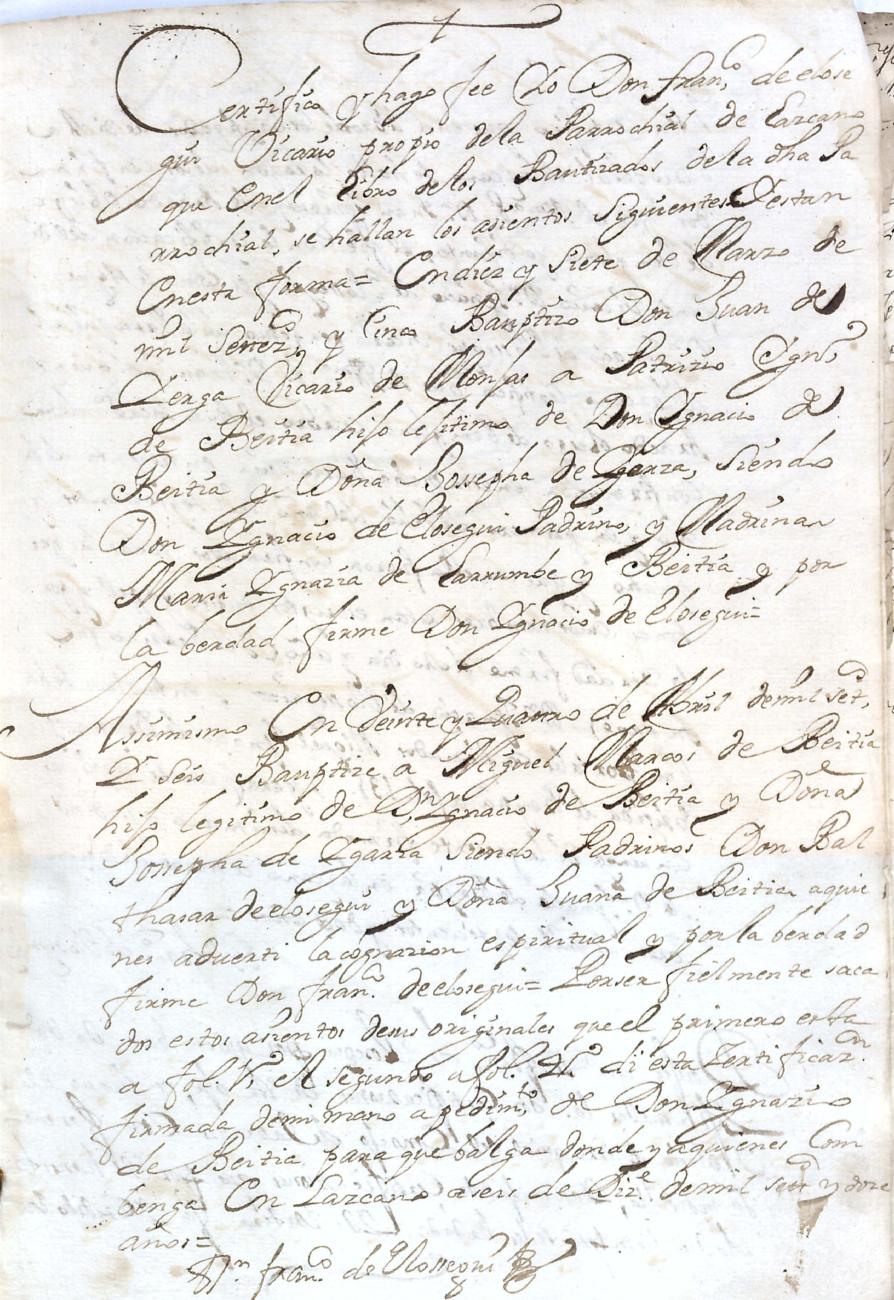 Certifico y hago fee Yo Don Fran.co de elose
gui Vicario propio dela Parrochial de Lazcano
que Enel Libro delos Bautizados dela dha Pa
rrochial, se hallan los asientos siguientes Y estan
Enesta forma= En diez y siete de Marzo de
mil Setez.os y Cinco Bauptizo Don Juan de
Zerga Vicario de Monjas a Patrizio Ygn.o
de Beitia hijo lesitimo de Don Ygnacio de
Beitia y Doña Jossepha de siendo
Don Ygnacio de Elosegui Padrino, y Madrina
Maria Ygnazia de Larrumbe y Beitia y por
la berdad firme Don Ygnacio de Elosegui=
Assimismo En Veinte y Quatro de Abril demil set.os
Y seis Bauptize a Miguel Marcos de Beitia
hijo legitimo de D.n Ygnacio de Beitia y Doña
Jossepha de Ygarza siendo Padrinos Don Bal
thasar de elosegui y Doña Juana de Beitia aquie
nes aduerti la cognazion espiritual y por la berdad
firme Don fran.co de elosegui= Y por ser fielmente saca
dos estos asientos desus originales que el primero esta
a fol. el segundo a fol. di esta Zertificaz.on
firmada demi mano a pedim.to de Don Ygnazio
de Beitia para que balga donde y aquienes Com
benga En Lazcano a seis de Diz.e demil set.os y doze
años=
D.n fran.co de Elossegui